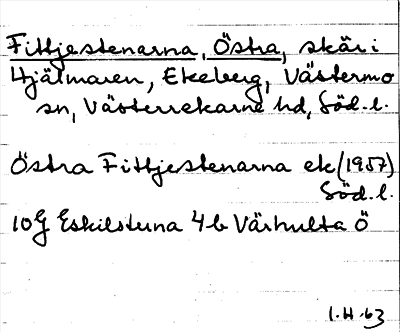 Fittjestenarna, Östra, skär i
Hjälmaren, Ekeberg, Västermo
sn, Västerrekarne hd, Söd. l.
Östra Fittjestenarna ek (1957)
Söd. l.
10G Eskilstuna 4b Värhulta Ö
1.H.63